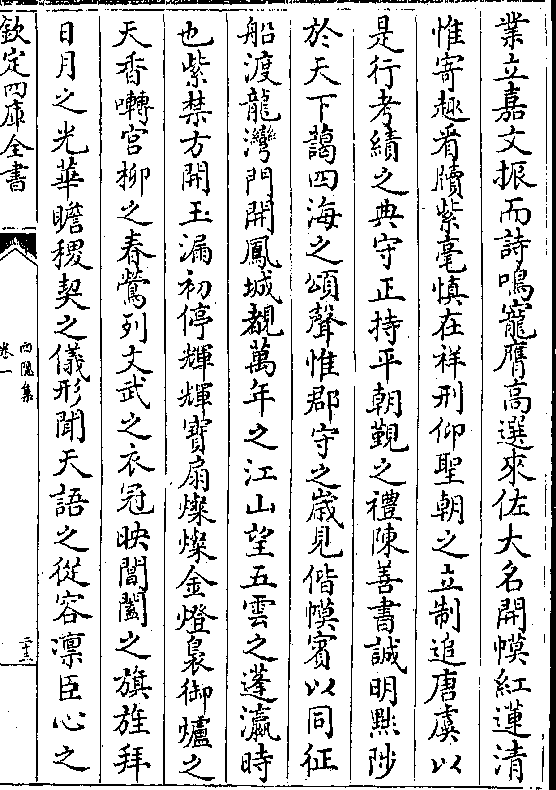 業立嘉文振而詩鳴寵膺高選來佐大名開幙紅蓮清
惟寄趣看牘紫毫慎在祥刑仰聖朝之立制追唐虞以
是行考績之典守正持平朝覲之禮陳善書誠明黜陟
於天下藹四海之頌聲惟郡守之歲見偕幙賓以同征
船渡龍灣門開鳳城覩萬年之江山望五雲之蓬瀛時
也紫禁方開玉漏初停輝輝寶扇燦燦金燈裊御爐之
天香囀宮栁之春鶯列文武之衣冠映閶闔之旗旌拜
日月之光華瞻稷契之儀形聞天語之從容凛臣心之
欽定四庫全書
西隱集
卷一
二十三